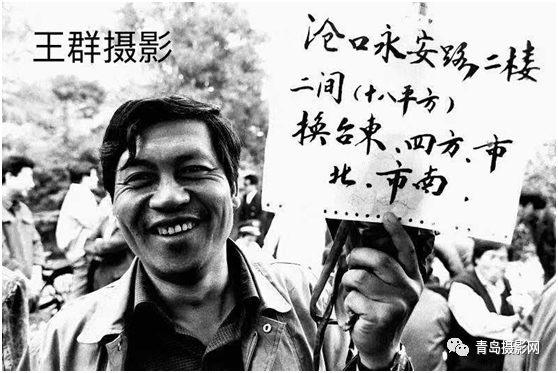 王群摄影
沧口永安路,二楼
二间(十八平方)
换台東、四方、市
北、市南.
青岛摄影网